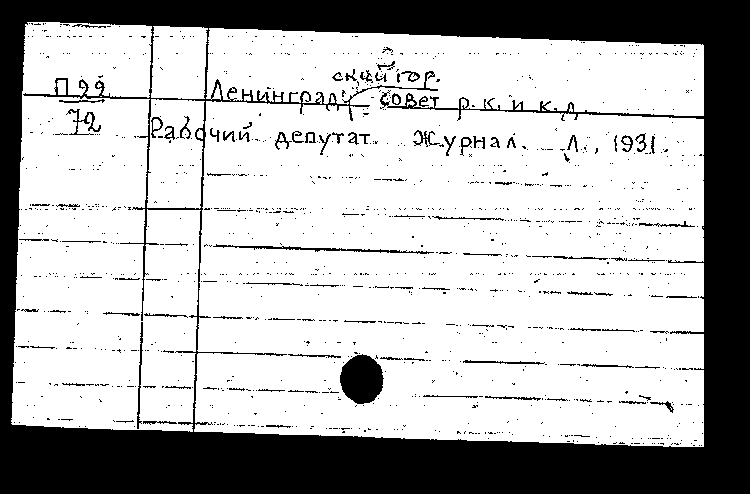 ский гор.
П 22 Ленинград совет р. к. и к. д.
72 Рабочий депутат. Журнал. Л., 1931.